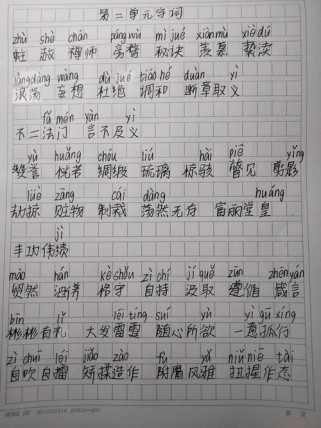 第二单元字词
zhù shè chán páng wù mì jué xiàn mù xiè dú
蛀 赦 禅师 旁骛 秘诀 羡慕 亵渎
làng dàng wàng dù jué tiáo hé duàn yì
浪荡 妄想 杜绝 调和 断章取义
fǎ mén yán yì
不二法门 言不及义
yù huǎng chóu liú hài piē yǐng
譬言 恍若 绸缎 琉璃 惊骇 瞥见 剪影
lüè zāng cái dàng huáng
劫掠 赃物 制裁 荡然无存 富丽堂皇
jì
丰功伟绩
mào hán kè shǒu zì chí jí qǔ zūn zhēn yán
贸然 涵养 恪守 自持 汲取 遵循 箴言
bīn lǐ léi tíng suí yù yì gū xíng
彬彬有礼 大发雷霆 随心所欲 一意孤行
zì chuī léi jiǎo zào fù yǎ niǔ niē tài
自吹自擂 矫揉造作 附庸风雅 扭捏作态